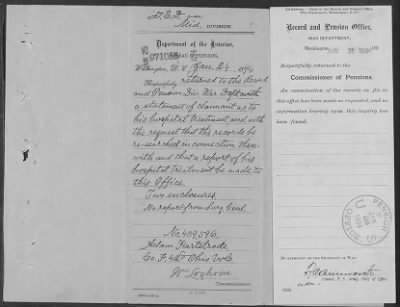 Mid. DIVISION.
Department of the Interior,
BUREAU OF PENSIONS,
971086
Washington, D.C. June 24, 1896
Respectfully returned to the Record
and Pension Div. War Dept. with
a statement of claimant as to
his hospital treatment and with
the request that the records be
re-searched in connection there-
with and that a report of his
hospital treatment be made to
this Office.
Two enclosures
No report from Surg Genl.
No. 409,596,
Adam Hartebrode
Co. F. 42 Ohio Vols.
Wm Lochren
Commissioner.
Record and Pension Office,
WAR DEPARTMENT,
Washington,
Respectfully returned to the
Commissioner of Pensions.
An examination of the records on file in
this office has been made as requested, and no
information bearing upon this inquiry has
been found.
BY AUTHORITY OF THE SECRETARY OF WAR:
F. C. Ainsworth
Colonel, U. S. Army, Chief of Office.